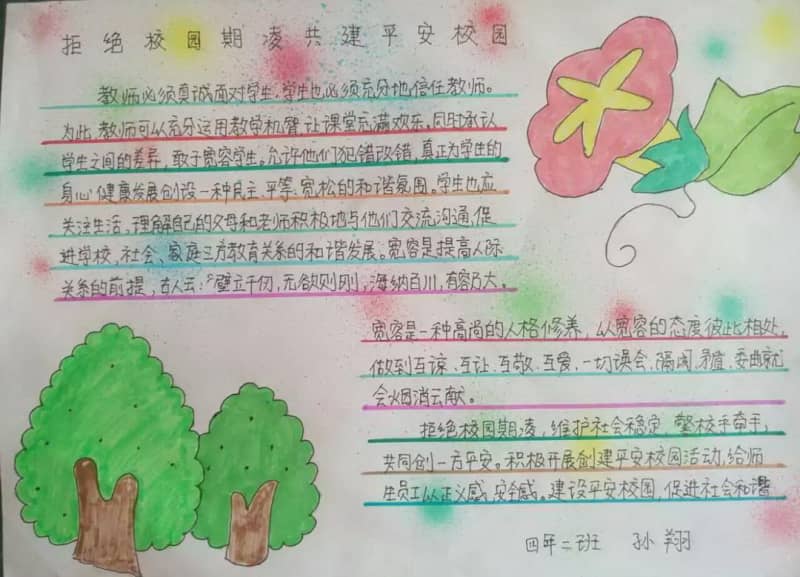 拒绝校园期凌共建平安校园
教师必须真诚面对学生,学生也必须充分地信任教师。
为此,教师可以充分运用教学机智,让课堂充满欢乐,同时承认
学生之间的差异,敢于宽容学生。允许他们犯错改错,真正为学生的
身心健康发展创设一种民主、平等、宽松的和谐氛围。学生也应
关注生活,理解自己的父母和老师积极地与他们交流沟通,促
进学校、社会、家庭三方教育关系的和谐发展。宽容是提高人际
关系的前提,古人云:“壁立千仞,无欲则刚,海纳百川,有容乃大。
宽容是一种高尚的人格修养,从宽容的态度彼此相处,
做到互谅、互让、互敬、互爱,一切误会、隔阂、矛盾、委曲就
会烟消云散。
拒绝校园期凌,维护社会稳定,警校手牵手,
共同创一方平安。积极开展创建平安校园活动,给师
生员工以正义感,安全感。建设平安校园,促进社会和谐
四年二班 孙翔